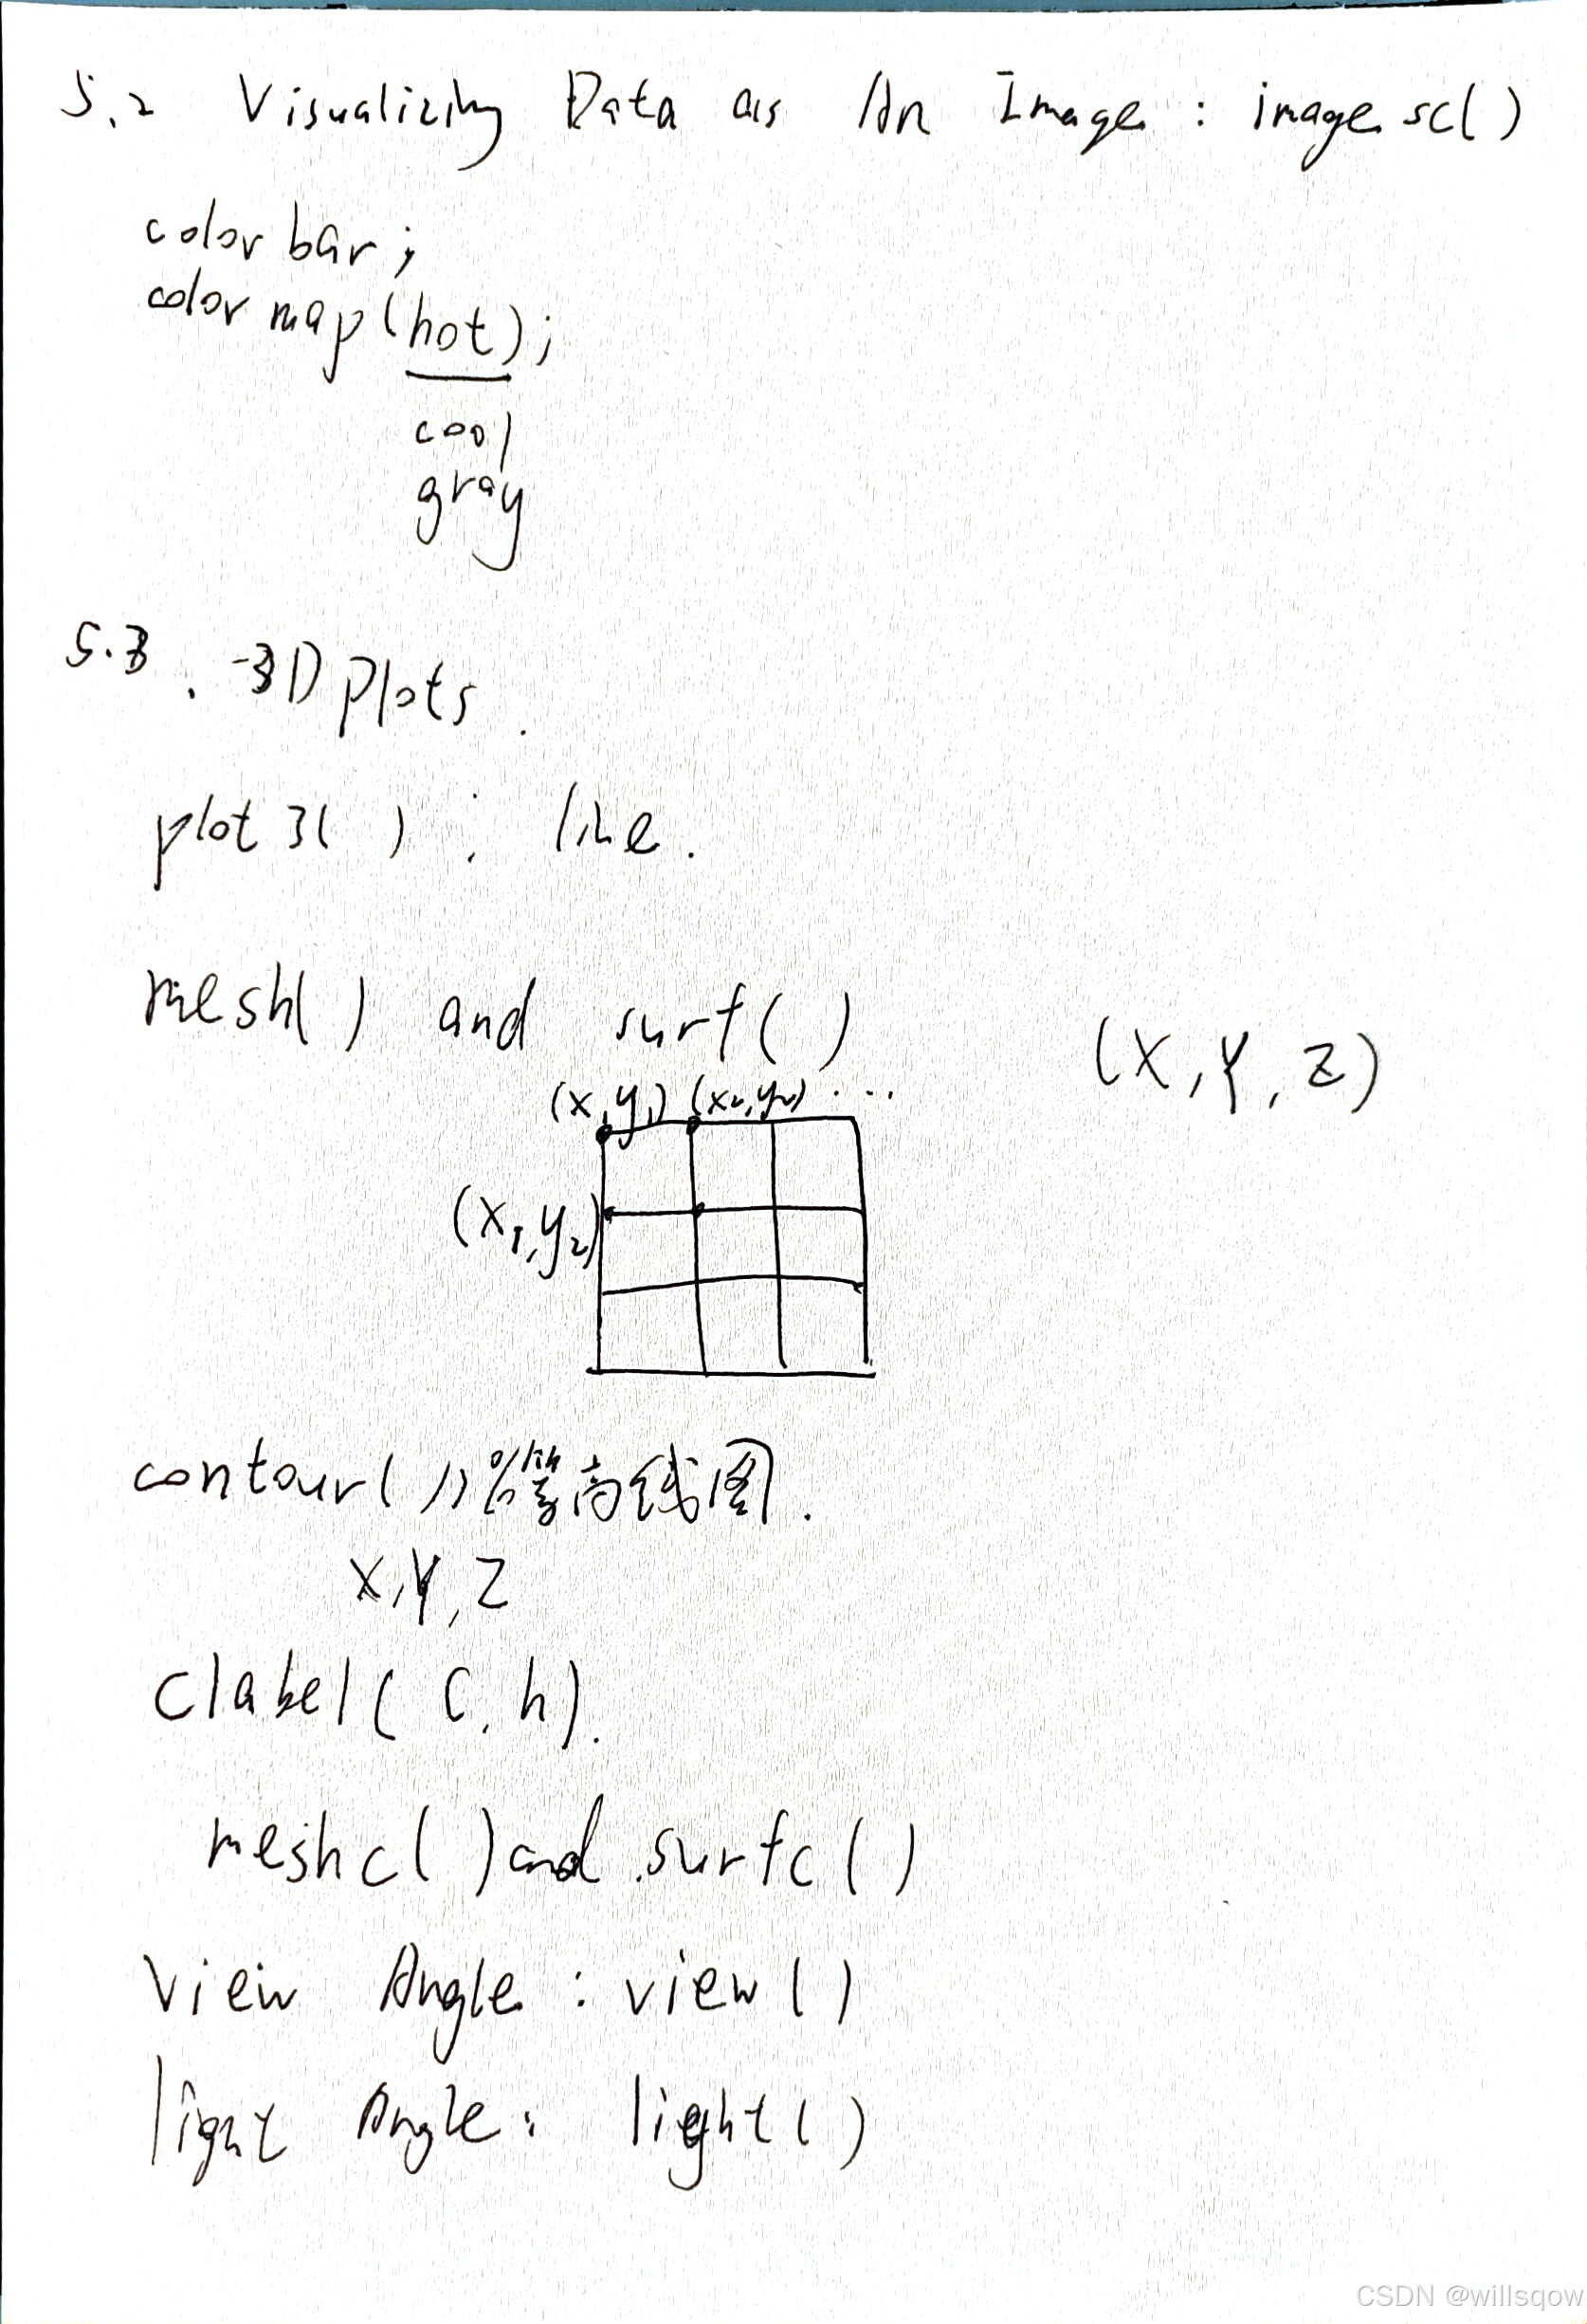 5.2 Visualizing Data as An Image : imagesc()
colorbar;
colormap(hot);
cool
gray
5.3. 3D plots.
plot3( ) : line.
mesh( ) and surf( )
(X, Y, Z)
(x1,y1) (x2,y2) ...
(x1,y2)
contour( ); %等高线图.
X,Y,Z
clabel( C, h).
meshc( ) and surfc( )
View Angle : view( )
light Angle: light( )
CSDN @willsqow